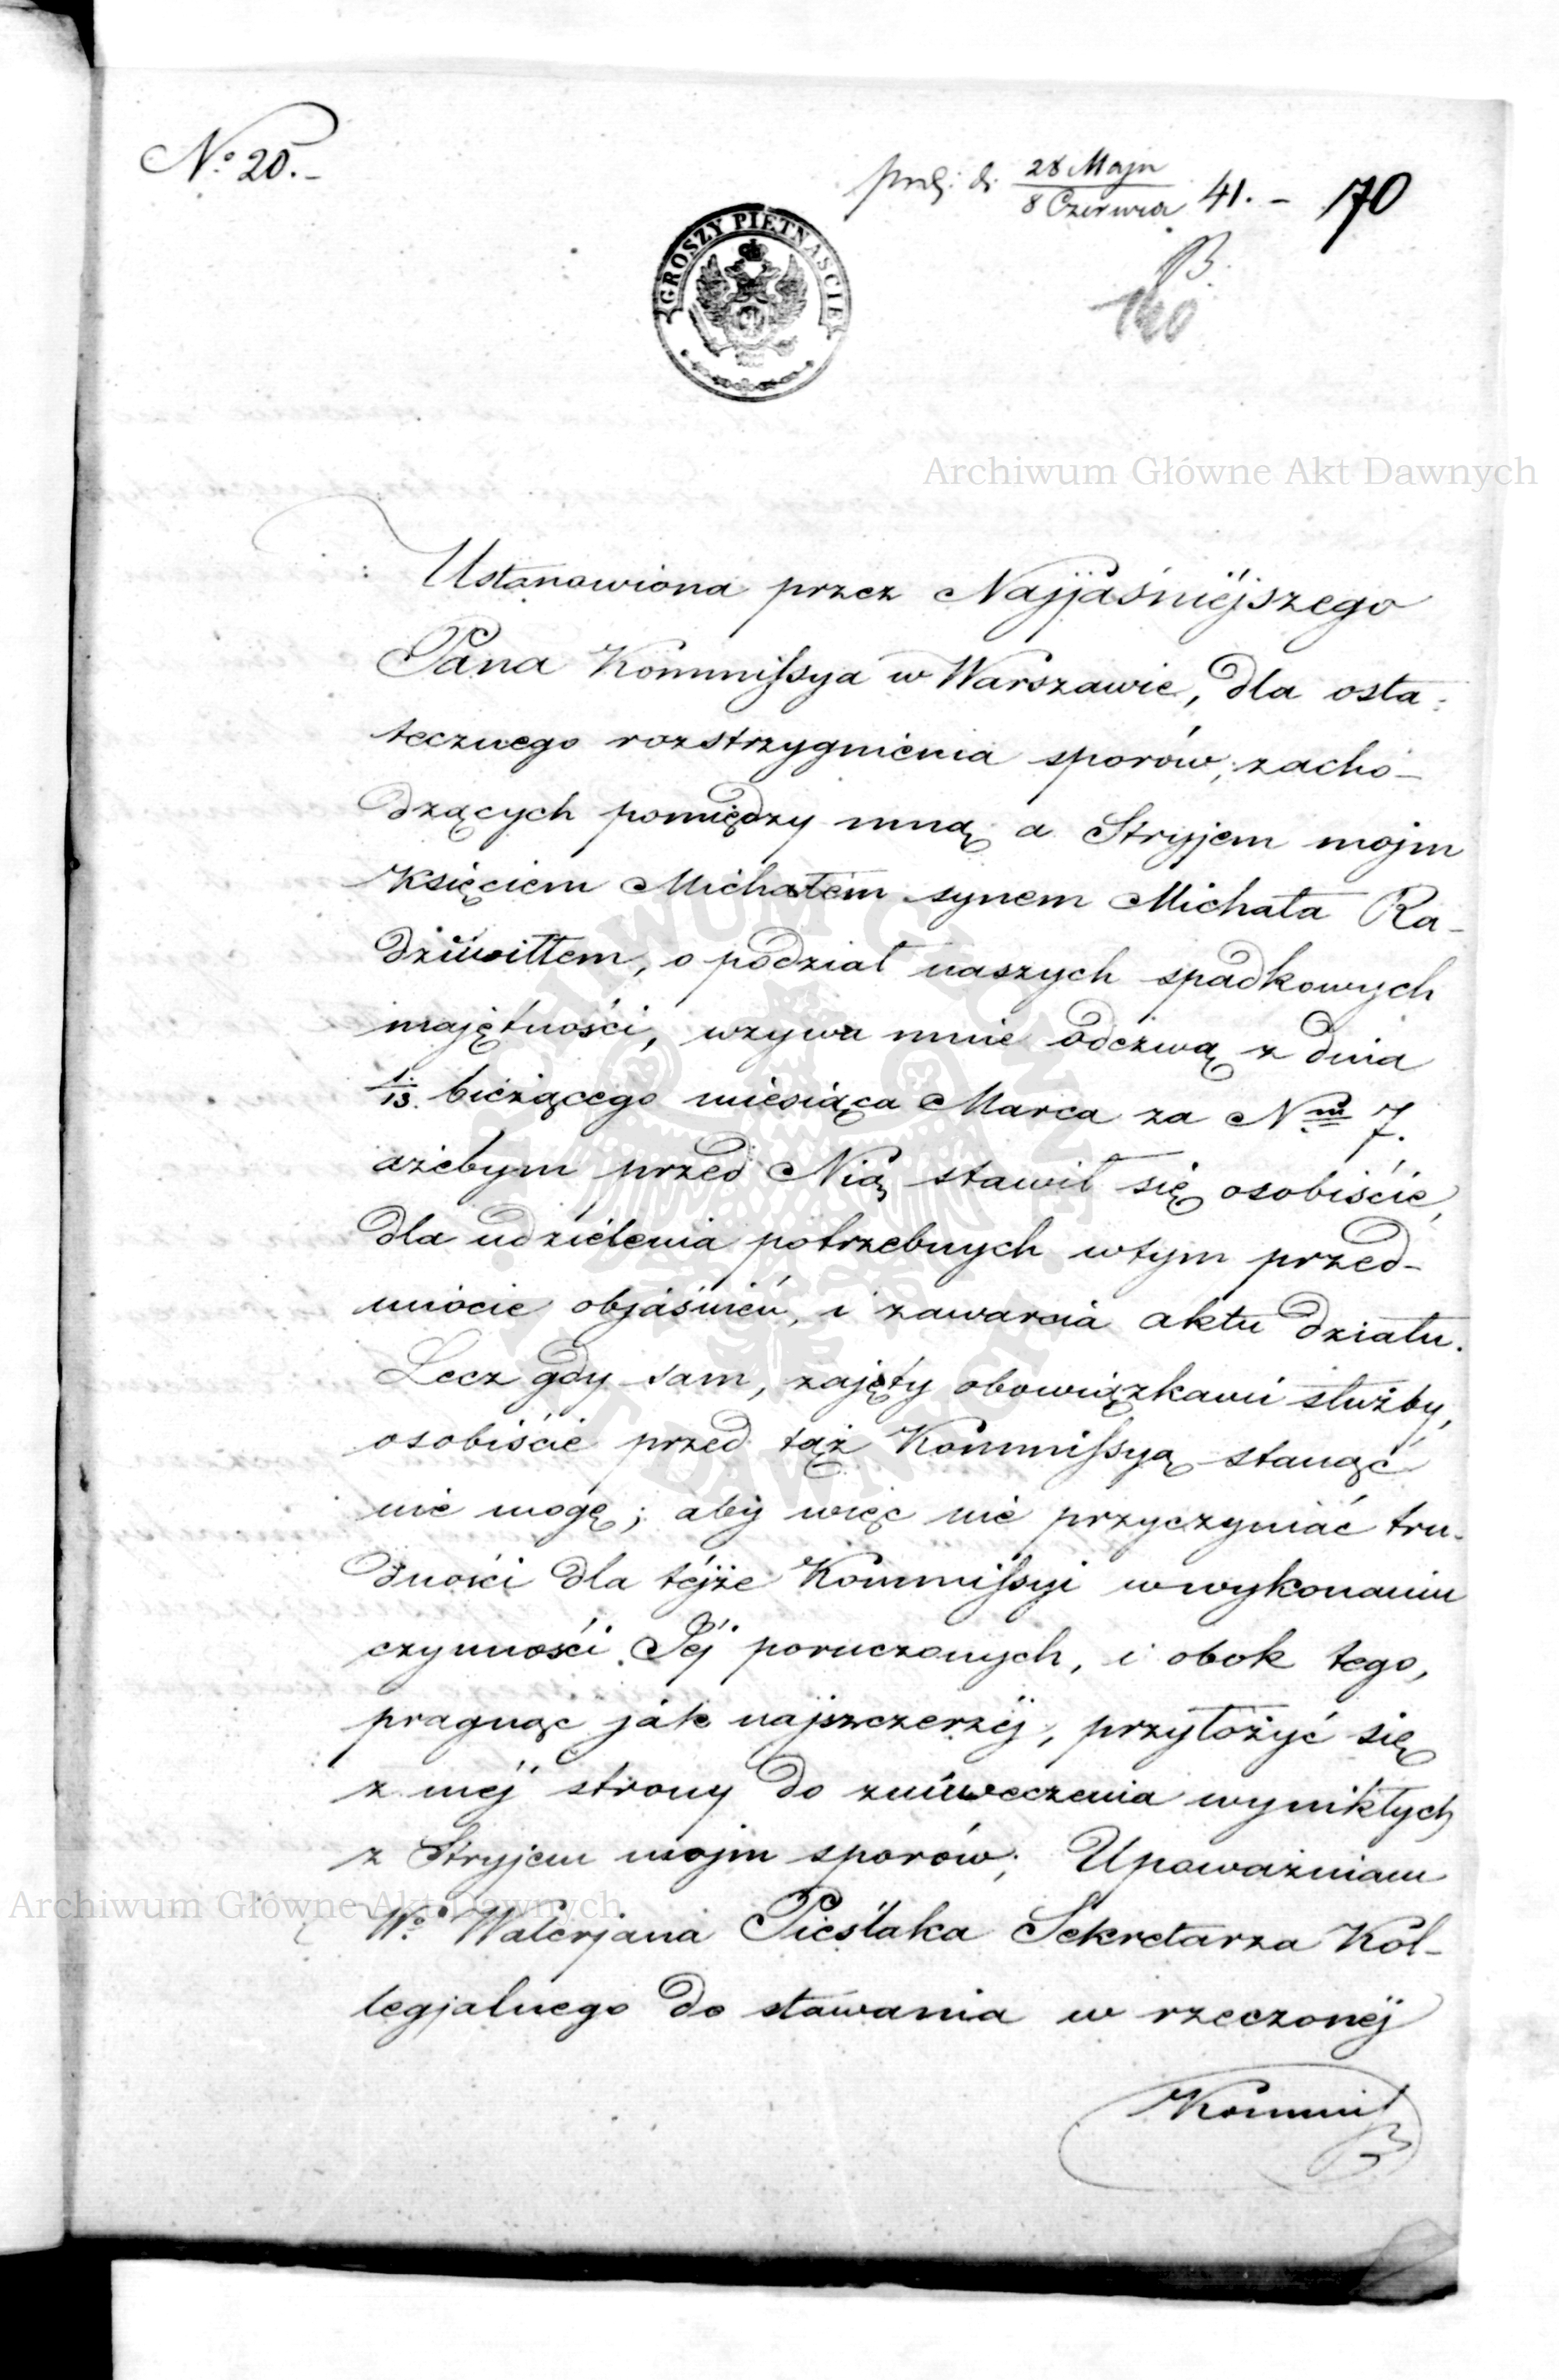 N.º 20.-
28 Maja
8 Czerwca 41. - 170
B.
140
GROSZY PIETNAŚCIE
Archiwum Główne Akt Dawnych
Ustanowiona przez Najjaśniéjszego
Pana Kommissya w Warszawie, dla osta:
tecznego rozstrzygnienia sporów, zacho-
dzących pomiędzy mną a Stryjem mojm
Księciem Michałem synem Michała Ra-
dziwiłłem, o podział naszych spadkowych
majętności, wzywa mnie odezwą z dnia
1/13. bieżącego miesiąca Marca za Nrm 7.
ażebym przed Nią stawił się osobiście,
dla udzielenia potrzebnych wtym przed-
miocie objaśnień, i zawarcia aktu działu.
Lecz gdy sam, zajęty obowiązkami służby,
osobiście przed tąż Kommissyą stanąć
nie mogę; aby więc nie przyczyniać tru-
dności dla téjże Kommissyi wwykonaniu
czynności Jéj poruczonych, i obok tego,
pragnąc jak najszczerzéj, przyłożyć się
z méj strony do zniweczenia wynikłych
z Stryjem mojm sporów; Upoważniam
Archiwum Główne Akt Dawnych
Wº Walerjana Pieślaka Sekretarza Kol-
legjalnego do stawania w rzeczonéj
Kommis